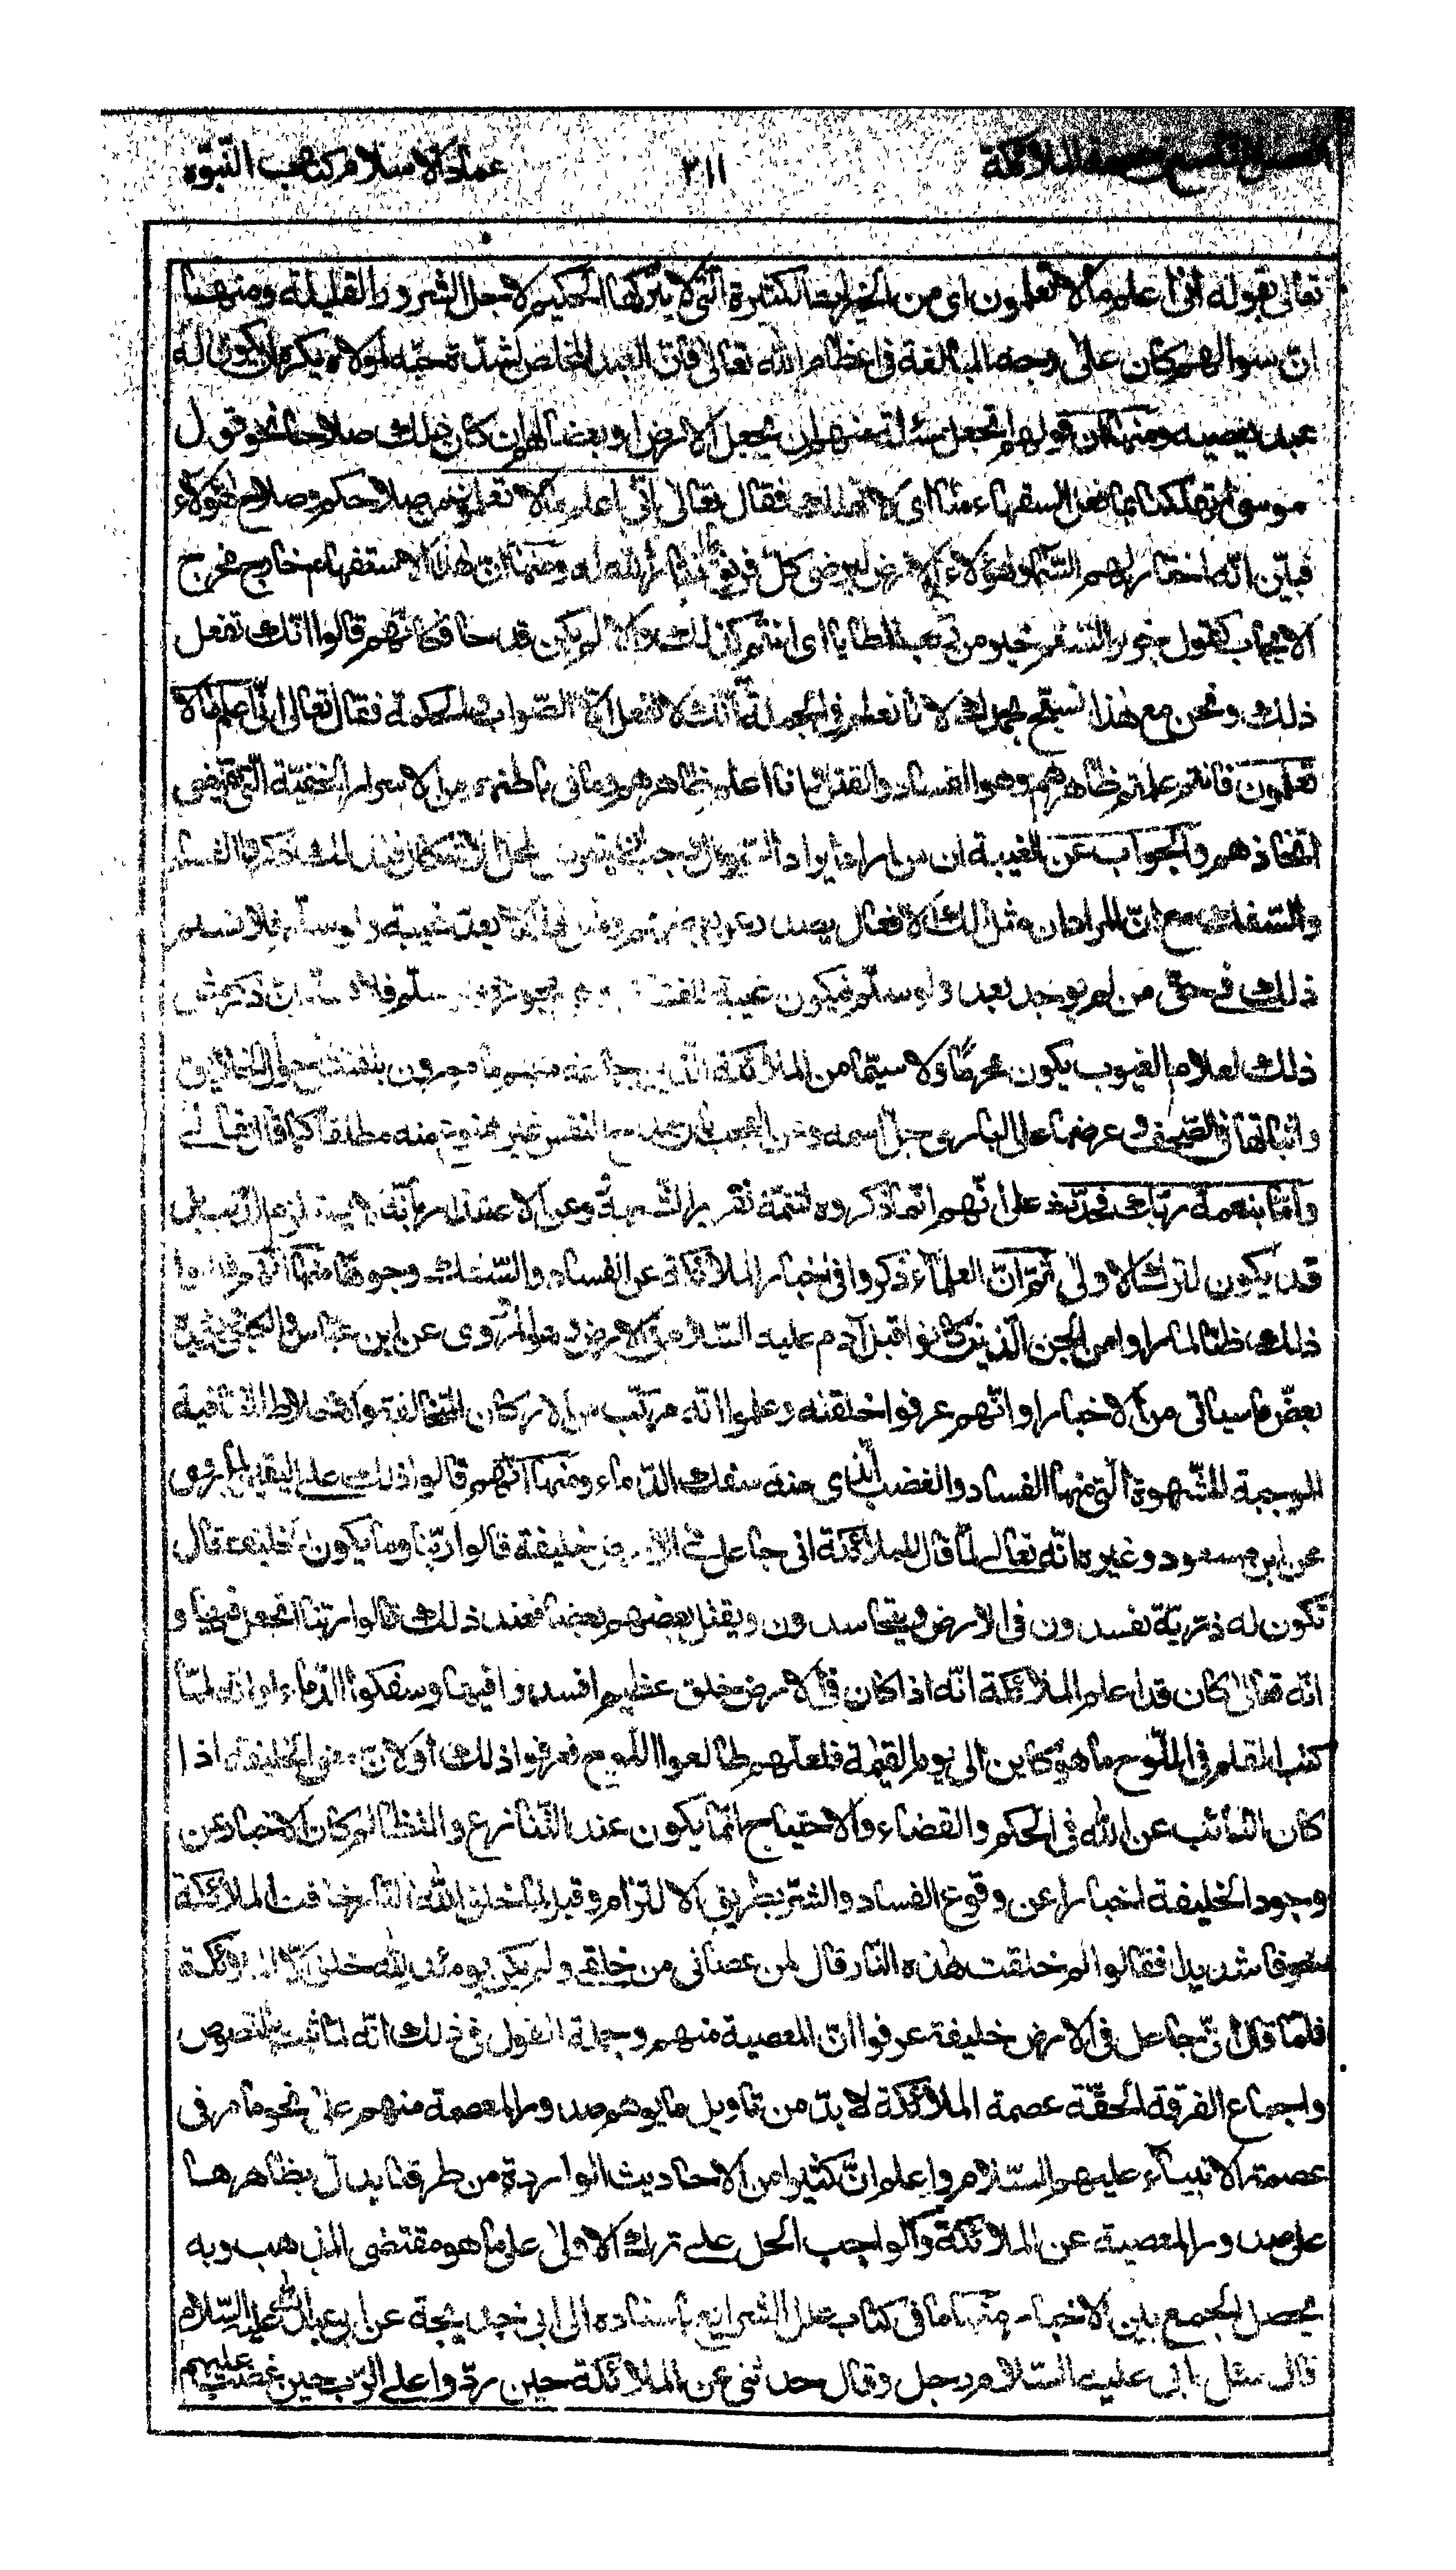 عصمة الملائكة ٢١١ عماد الاسلام كتاب النبوّة
تعالى بقوله انّى اعلم ما لا تعلمون اى من الخيرات الكثيرة التى لا يتركها الحكيم لاجل الشرور القليلة ومنها
انّ سوالهم كان على وجه المبالغة فى اعظام الله تعالى فانّ العبد المخلص لشدّة حبّه لمولاه يكره ان يكون له
عبد يعصيه ومنها ان قولهم اتجعل مسئلة منهم ان يجعل الارض او بعضها لهم ان كان ذلك صلاحا نحو قول
موسى اتهلكنا بما فعل السفهاء منّا اى لا تهلكنا فقال تعالى انّى اعلم ما لا تعلمون من صلاحكم وصلاح هؤلاء
فبيّن انّه اختار لهم السّماء ولهؤلاء الارض ليرضى كلّ فريق بما اختاره الله له ومنها انّ هذا الاستفهام خارج مخرج
الايجاب كقول جرير الستم خير من ركب المطايا اى انتم كذلك والا لم يكن مدحا فكانّهم قالوا انّك تفعل
ذلك ونحن مع هذا نسبّح بحمدك لانّا نعلم فى الجملة انّك لا تفعل الا الصّواب والحكمة فقال تعالى انّى اعلم ما لا
تعلمون فانتم علمتم ظاهرهم وهو الفساد والقتل وانا اعلم ظاهرهم وما فى باطنهم من الاسرار الخفيّة التى تقتضى
اتخاذهم والجواب عن الغيبة ان من اراد ايراد السّوال وجب ان يتعرض لمحلّ الاشكال فلذلك ذكروا الفساد
والسّفك مع انّ المراد ان مثل تلك الافعال يصدر عن بعضهم ومثل هذا لا يعدّ غيبة ولو سلّم فلا نسلم
ذلك فى حق من لم يوجد بعد ولو سلّم فيكون غيبة للفسّاق وهى يجوز ولو سلّم فلا نسلّم ان ذكر مثل
ذلك لعلام الغيوب يكون محرمًا ولا سيّما من الملائكة الذين جماعة منهم مامورون بتفتيش احوال الخلايق
واثباتها فى الصّحف وعرضها على البارى جلّ اسمه وعن العجب بان مدح النفس غير ممنوع منه مطلقا كما قال تعالى
وامّا بنعمة ربّك فحدّث على انّهم انّما ذكروه لتتمّة تقرير الشّبهة وعن الاعتذار بانّه لا يستلزم الذنب بل
قد يكون لترك الاولى ثمّ انّ العلماء ذكروا فى اخبار الملائكة عن الفساد والسّفك وجوها منها انّهم قالوا
ذلك ظنّا لما راوا من الجن الّذين كانوا قبل آدم عليه السّلام فى الارض وهو المروى عن ابن عباس والكلبى ويؤيّده
بعض ما سياتى من الاخبار او انّهم عرفوا خلقته وعلموا انّه مركّب من الاركان المتخالفة والاخلاط المتنافية
الموجبة للشّهوة الّتى منها الفساد والغضب الّذى منه سفك الدّماء ومنها انّهم قالوا ذلك على اليقين لما يروى
عن ابن مسعود وغيره انّه تعالى لمّا قال للملائكة انى جاعل فى الارض خليفة قالوا ربّنا وما يكون الخليفة قال
تكون له ذريّة تفسدون فى الارض ويتحاسدون ويقتل بعضهم بعضا فعند ذلك قالوا ربّنا اتجعل فيها و
انّه تعالى كان قد اعلم الملائكة انّه اذا كان فى الارض خلق عظيم افسدوا فيها وسفكوا الدّماء او انّه لمّا
كتب القلم فى اللّوح ما هو كاين الى يوم القيمة فلعلّهم طالعوا اللّوح فعرفوا ذلك او لانّ معنى الخليفة اذا
كان النّائب عن الله فى الحكم والقضاء والاحتياج انّما يكون عند التّنازع والتظالم كان الاخبار عن
وجود الخليفة اخبارا عن وقوع الفساد والشرّ بطريق الالتزام وقيل لمّا خلق الله النّار خافت الملائكة
خوفا شديدا فقالوا لم خلقت هذه النّار قال لمن عصانى من خلقى ولم يكن يومئذ لله خلق الّا الملائكة
فلمّا قال انّى جاعل فى الارض خليفة عرفوا انّ المعصية منهم وجملة القول فى ذلك انّه لمّا ثبت بالنّصوص
واجماع الفرقة المحقّة عصمة الملائكة لا بدّ من تاويل ما يوهم صدور المعصية منهم على نحو ما مر فى
عصمة الانبياء عليهم السّلام واعلم انّ كثيرا من الاحاديث الواردة من طرقنا يدلّ بظاهرها
على صدور المعصية عن الملائكة والواجب الحمل على ترك الاولى على ما هو مقتضى المذهب وبه
يحصل الجمع بين الاخبار منها ما فى كتاب علل الشرايع باسناده الى ابى خديجة عن ابى عبد الله عليه السّلام
قال سئل ابى عليه السّلام رجل وقال حدثنى عن الملائكة حين ردّوا على الرّب حين غضب عليهم